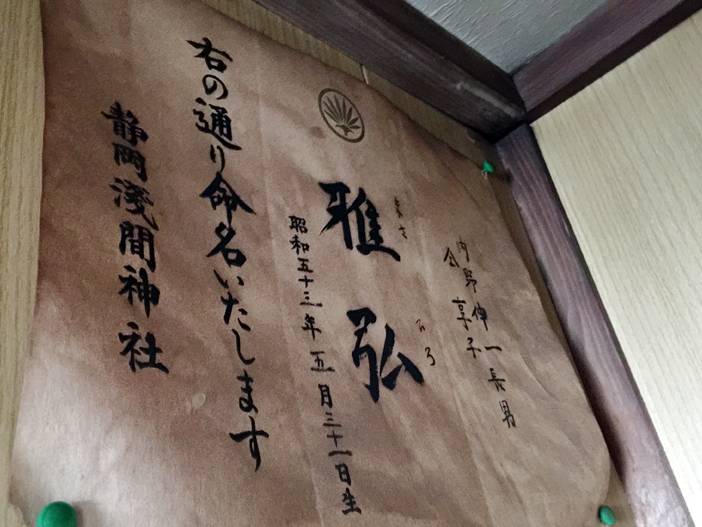 内野 伸一 長男
仝 享子
まさ ひろ
雅弘
昭和五十三年五月三十一日生
右の通り命名いたします
静岡浅間神社